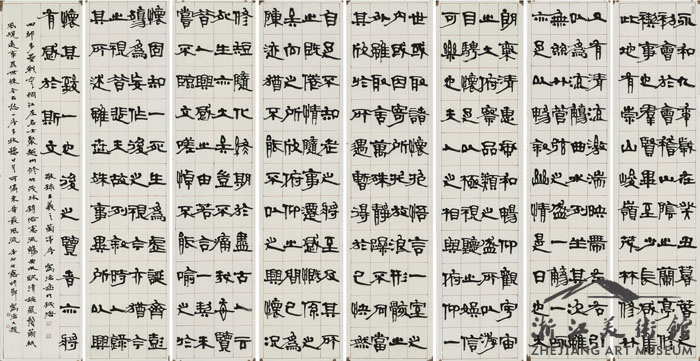 永和九年歲在癸丑暮春之
初會于會稽山陰之蘭亭脩
禊事也羣賢畢至少長咸集
此地有崇山峻嶺茂林脩竹
又有清流激湍映帶左右引
以為流觴曲水列坐其次雖
無絲竹管弦之盛一觴一詠
亦足以暢敘幽情是日也天
朗氣清惠風和暢仰觀宇宙
之大俯察品類之盛所以遊
目騁懷足以極視聽之娛信
可樂也夫人之相與俯仰一
世或取諸懷抱悟言一室之
內或因寄所託放浪形骸之
外雖趣舍萬殊靜躁不同當
其欣於所遇暫得於己快然
自足不知老之將至及其所
之既倦情隨事遷感慨係之
矣向之所欣俛仰之間已為
陳迹猶不能不以之興懷況
脩短隨化終期於盡古人云
死生亦大矣豈不痛哉每覽
昔人興感之由若合一契未
嘗不臨文嗟悼不能喻之於
懷固知一死生為虛誕齊彭
殤為妄作後之視今亦猶今
之視昔悲夫故列敘時人錄
其所述雖世殊事異所以興
懷其致一也後之覽者亦將
有感於斯文
浙江美術館
ZHEJIANG ART MUSEUM